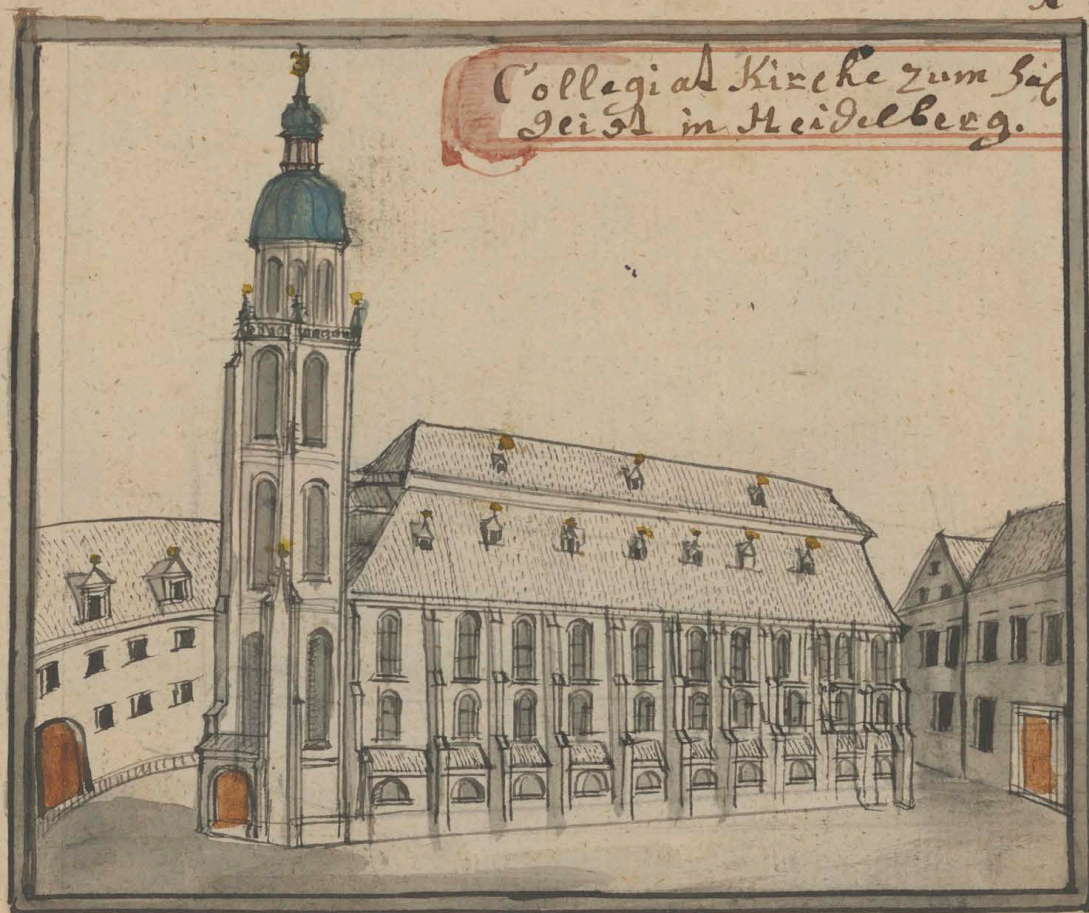 Collegiat Kirche zum Heil
Geist in Heidelberg.